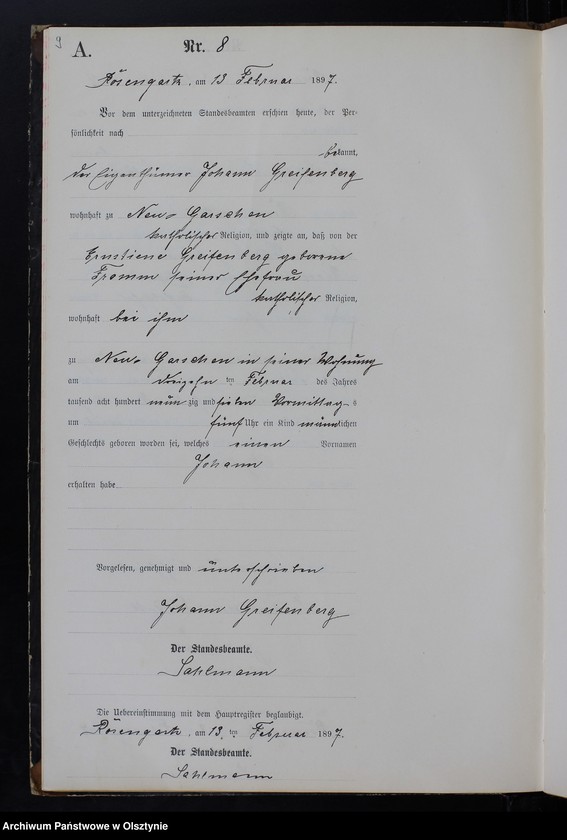 9
A.
Nr. 8
Rosengarth, am 13 Februar 1897.
Vor dem unterzeichneten Standesbeamten erschien heute, der Per-
sönlichkeit nach
bekannt,
der Eigenthümer Johann Greifenberg
wohnhaft zu Neu-Garschen
katholischer Religion, und zeigte an, daß von der
Ernstiene Greifenberg geborene
Fromm seiner Ehefrau
katholischer Religion,
wohnhaft bei ihm
zu Neu-Garschen in seiner Wohnung
am dreizehn ten Februar des Jahres
tausend acht hundert neun zig und sieben Vormittag s
um fünf Uhr ein Kind männlichen
Geschlechts geboren worden sei, welches einen Vornamen
Johann
erhalten habe
Vorgelesen, genehmigt und unterschrieben
Johann Greifenberg
Der Standesbeamte.
Sahlmann
Die Uebereinstimmung mit dem Hauptregister beglaubigt.
Rosengarth, am 13. ten Februar 1897.
Der Standesbeamte.
Sahlmann
Archiwum Państwowe w Olsztynie